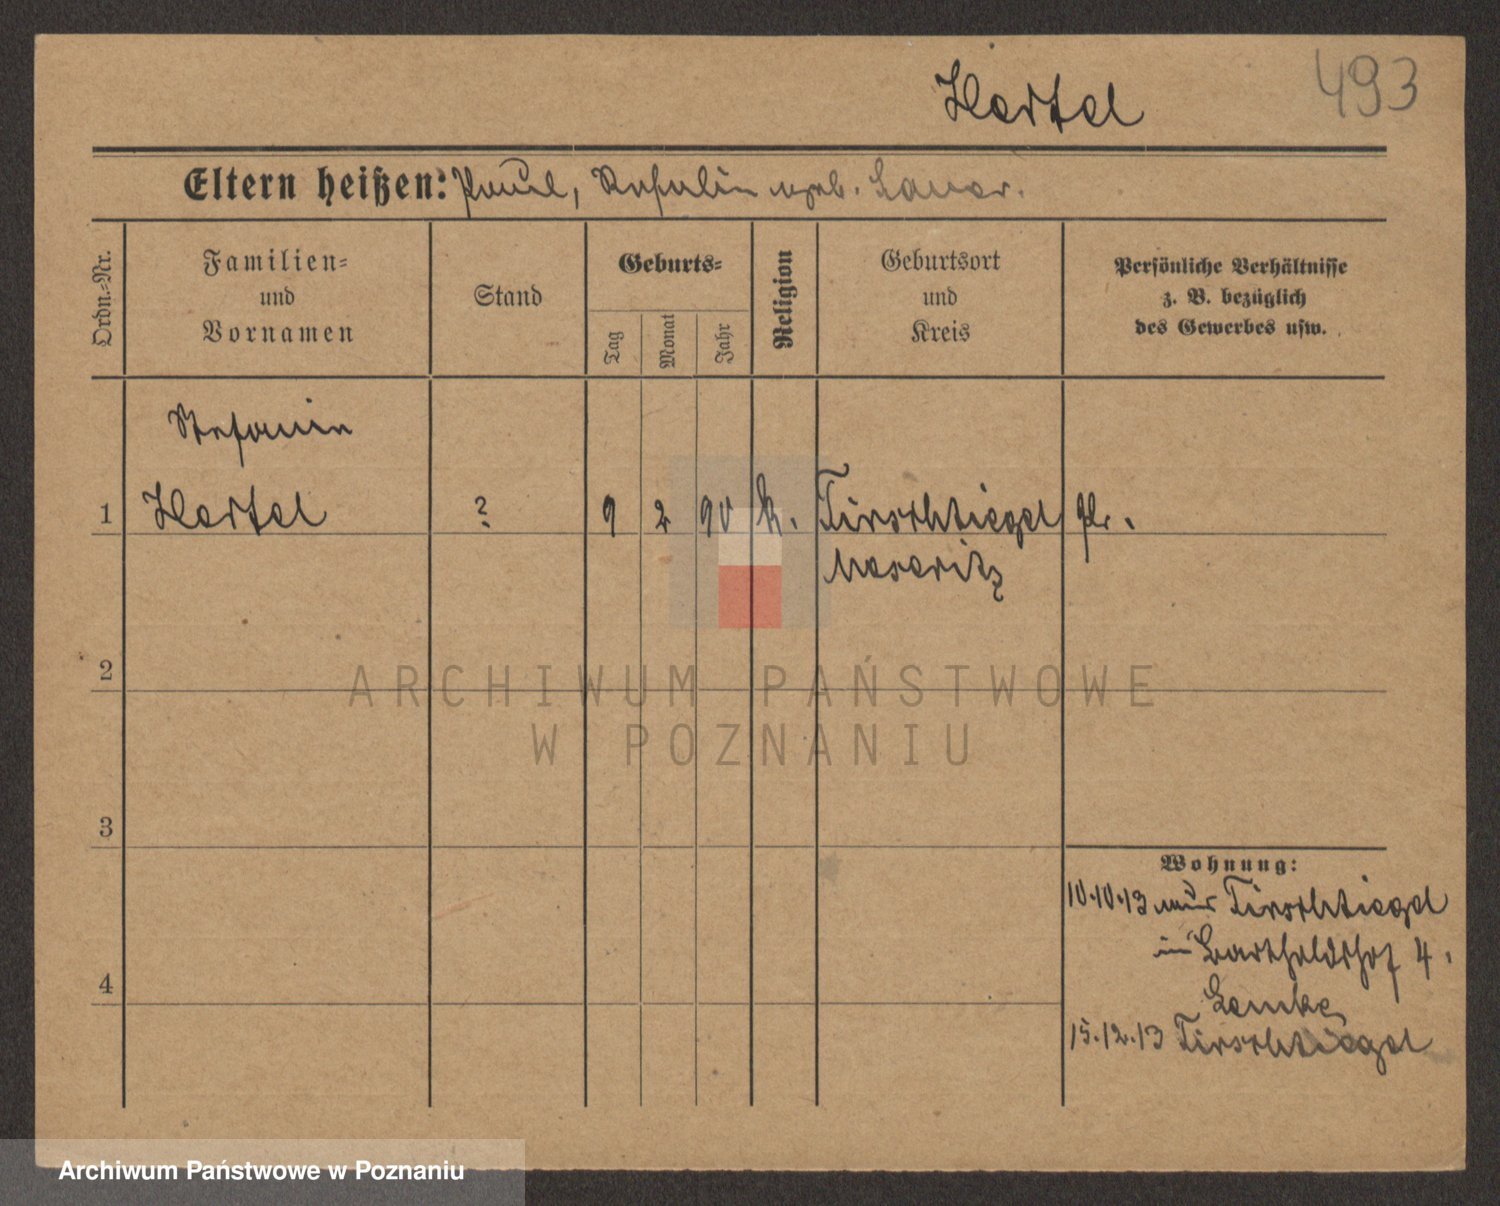 Hertel
493
Eltern heißen: Paul, Rosalie geb. Lauer.
Ordn.=Nr.
Familien=
und
Vornamen
Stand
Geburts=
Tag
Monat
Jahr
Religion
Geburtsort
und
Kreis
Persönliche Verhältnisse
z. B. bezüglich
des Gewerbes usw.
Stefanie
1 Hertel ? 9 2 90 k. Tirschtiegel Pr.
Meseritz
2
ARCHIWUM PAŃSTWOWE
W POZNANIU
3
Wohnung:
10.10.13 aus Tirschtiegel
in Bartholdshof 4.
4
Lemke
15.12.13 Tirschtiegel
Archiwum Państwowe w Poznaniu